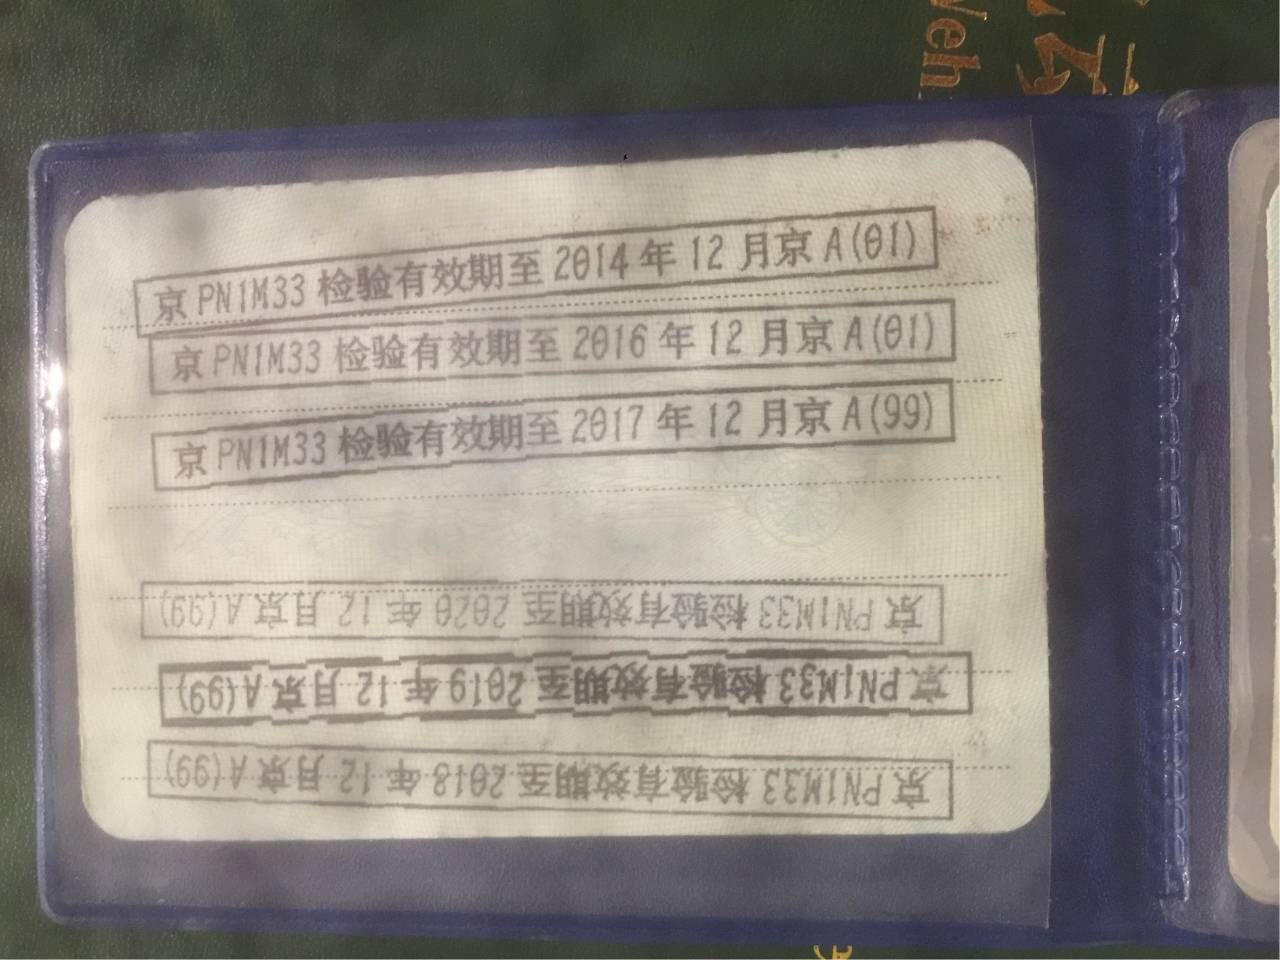 Veh
京PN1M33 检验有效期至 2014 年 12 月京A(01)
京PN1M33 检验有效期至 2016 年 12 月京A(01)
京PN1M33 检验有效期至 2017 年 12 月京A(99)
京PN1M33 检验有效期至 2020 年 12 月京A(99)
京PN1M33 检验有效期至 2019 年 12 月京A(99)
京PN1M33 检验有效期至 2018 年 12 月京A(99)